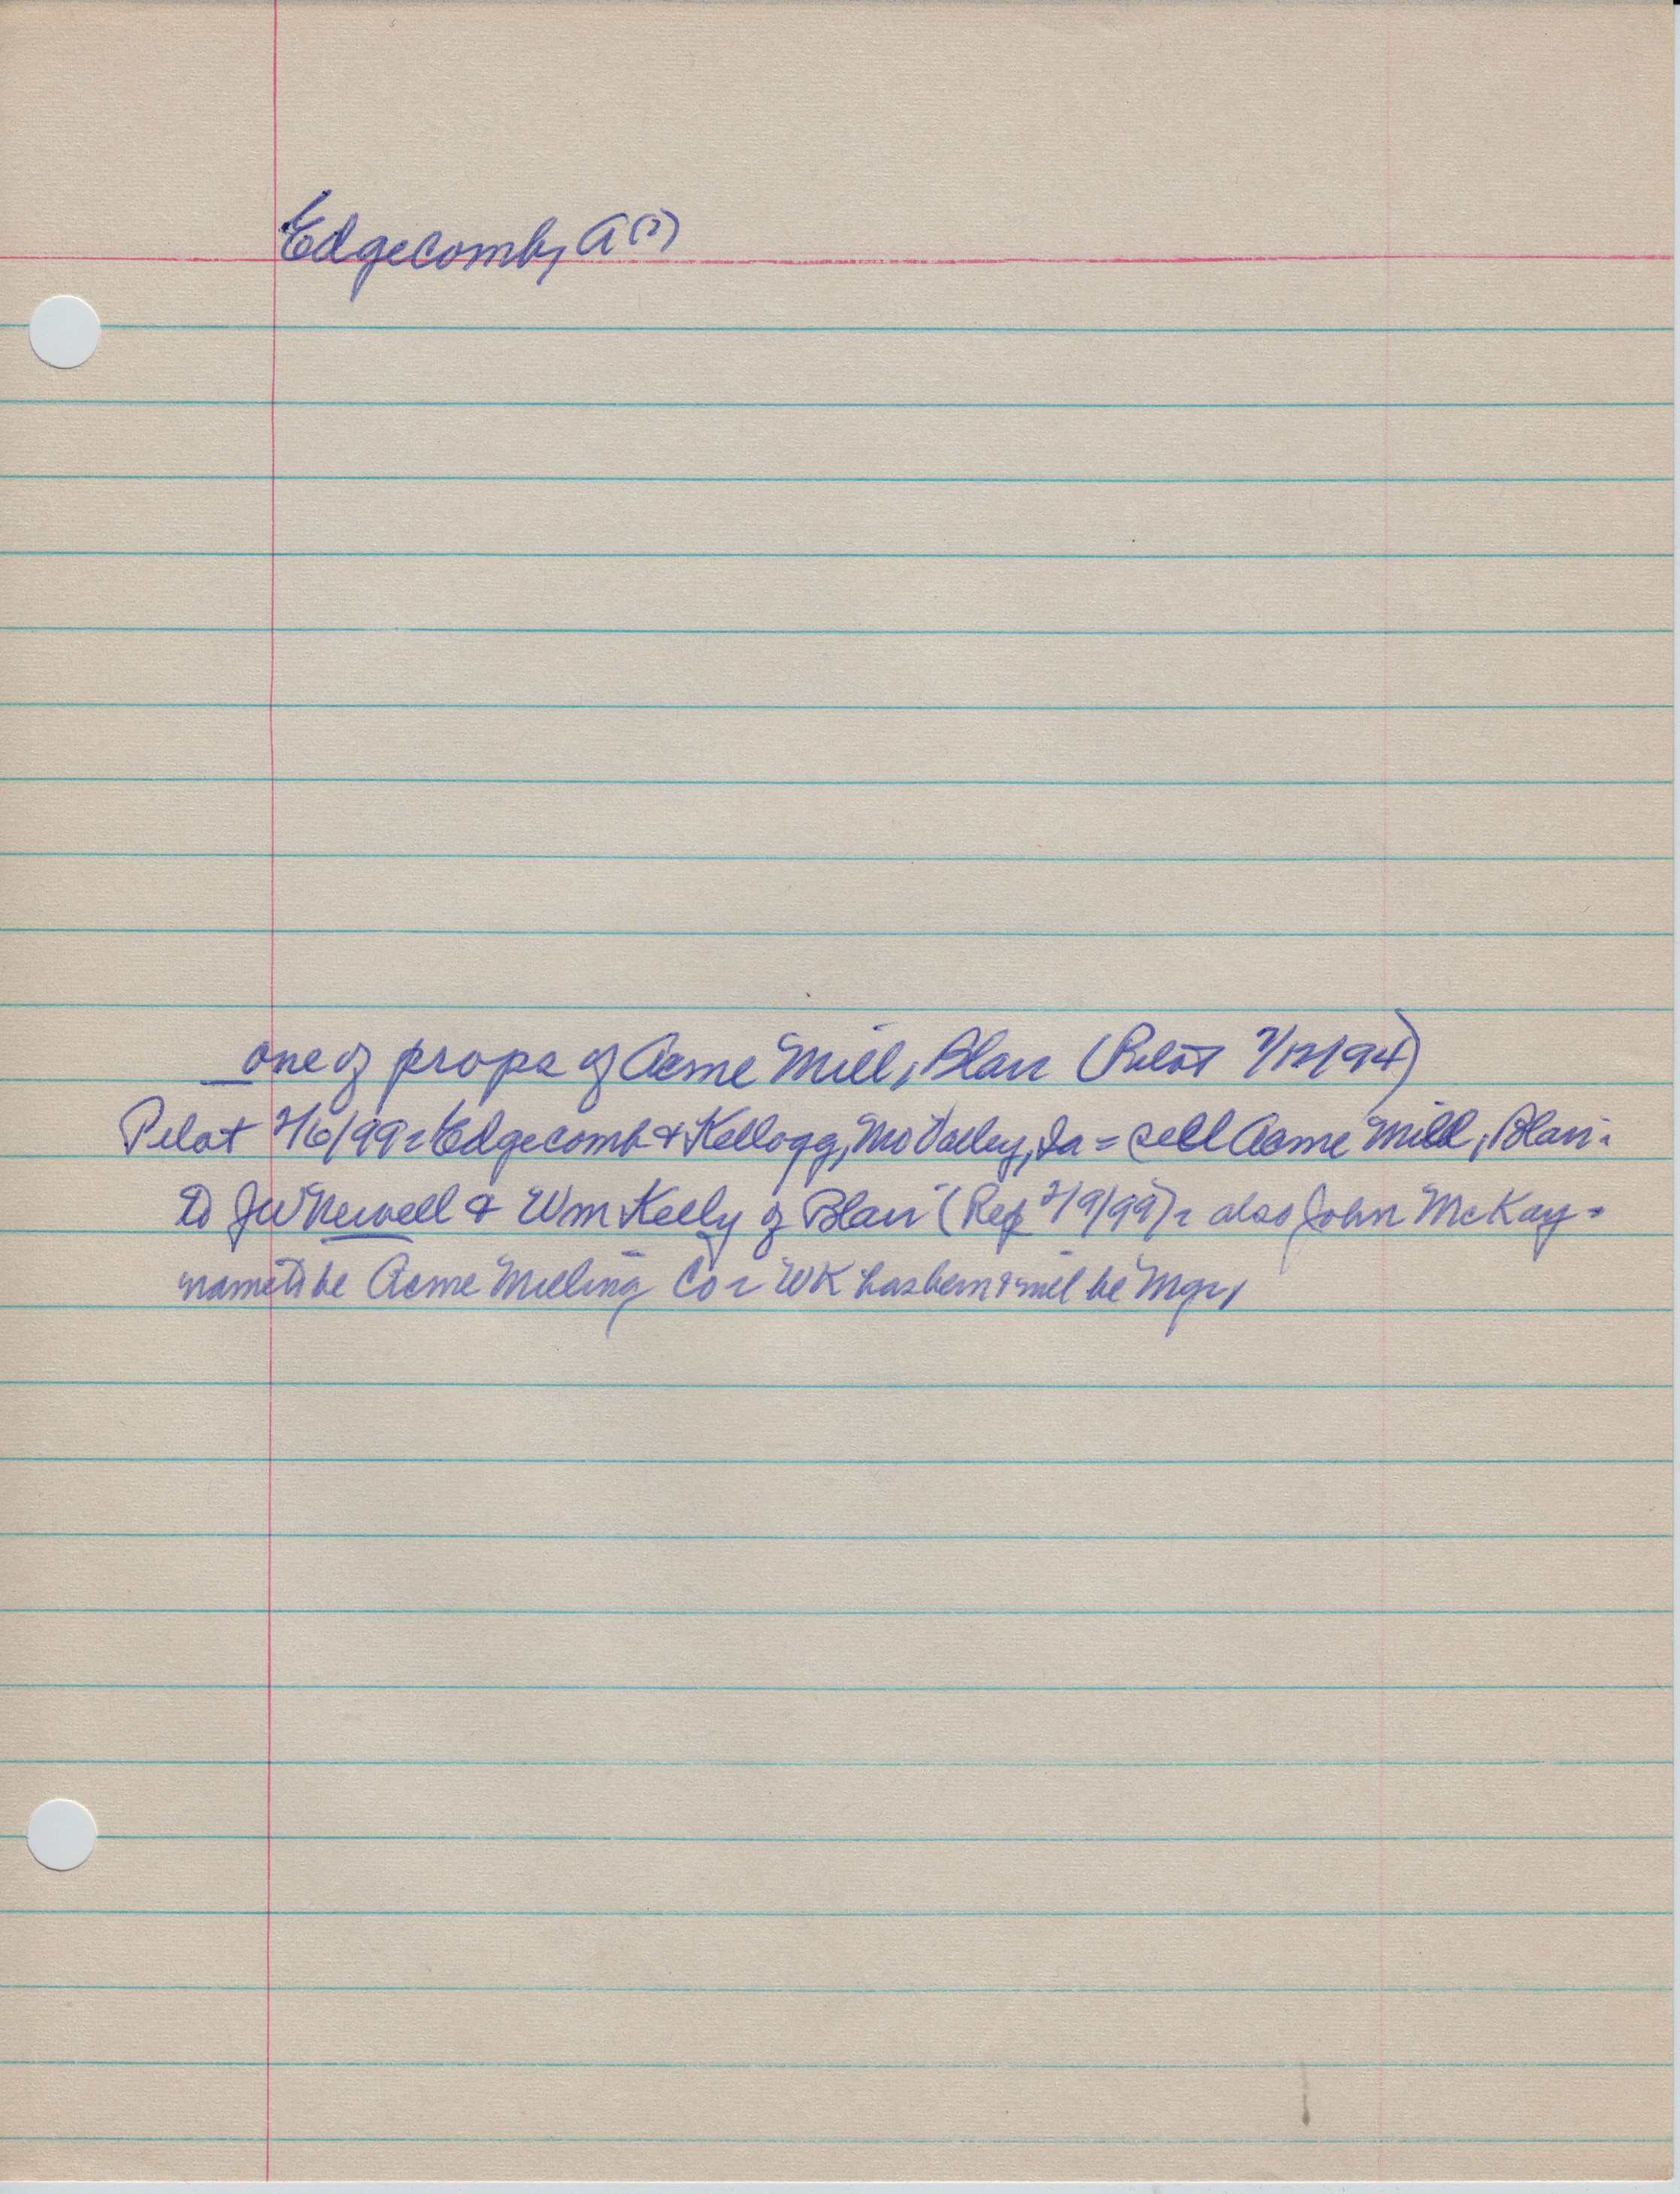 Edgecomb, A (?)
one of props of Acme Mill, Blair (Pilot 7/12/94)
Pilot 2/6/99 - Edgecomb & Kellogg, Mo Valley, Ia = sell Acme Mill, Blair -
to JW Newell & Wm Kelly of Blair (Rep 2/9/99) - also John McKay -
name to be Acme Milling Co - WK has been & will be Mgr,